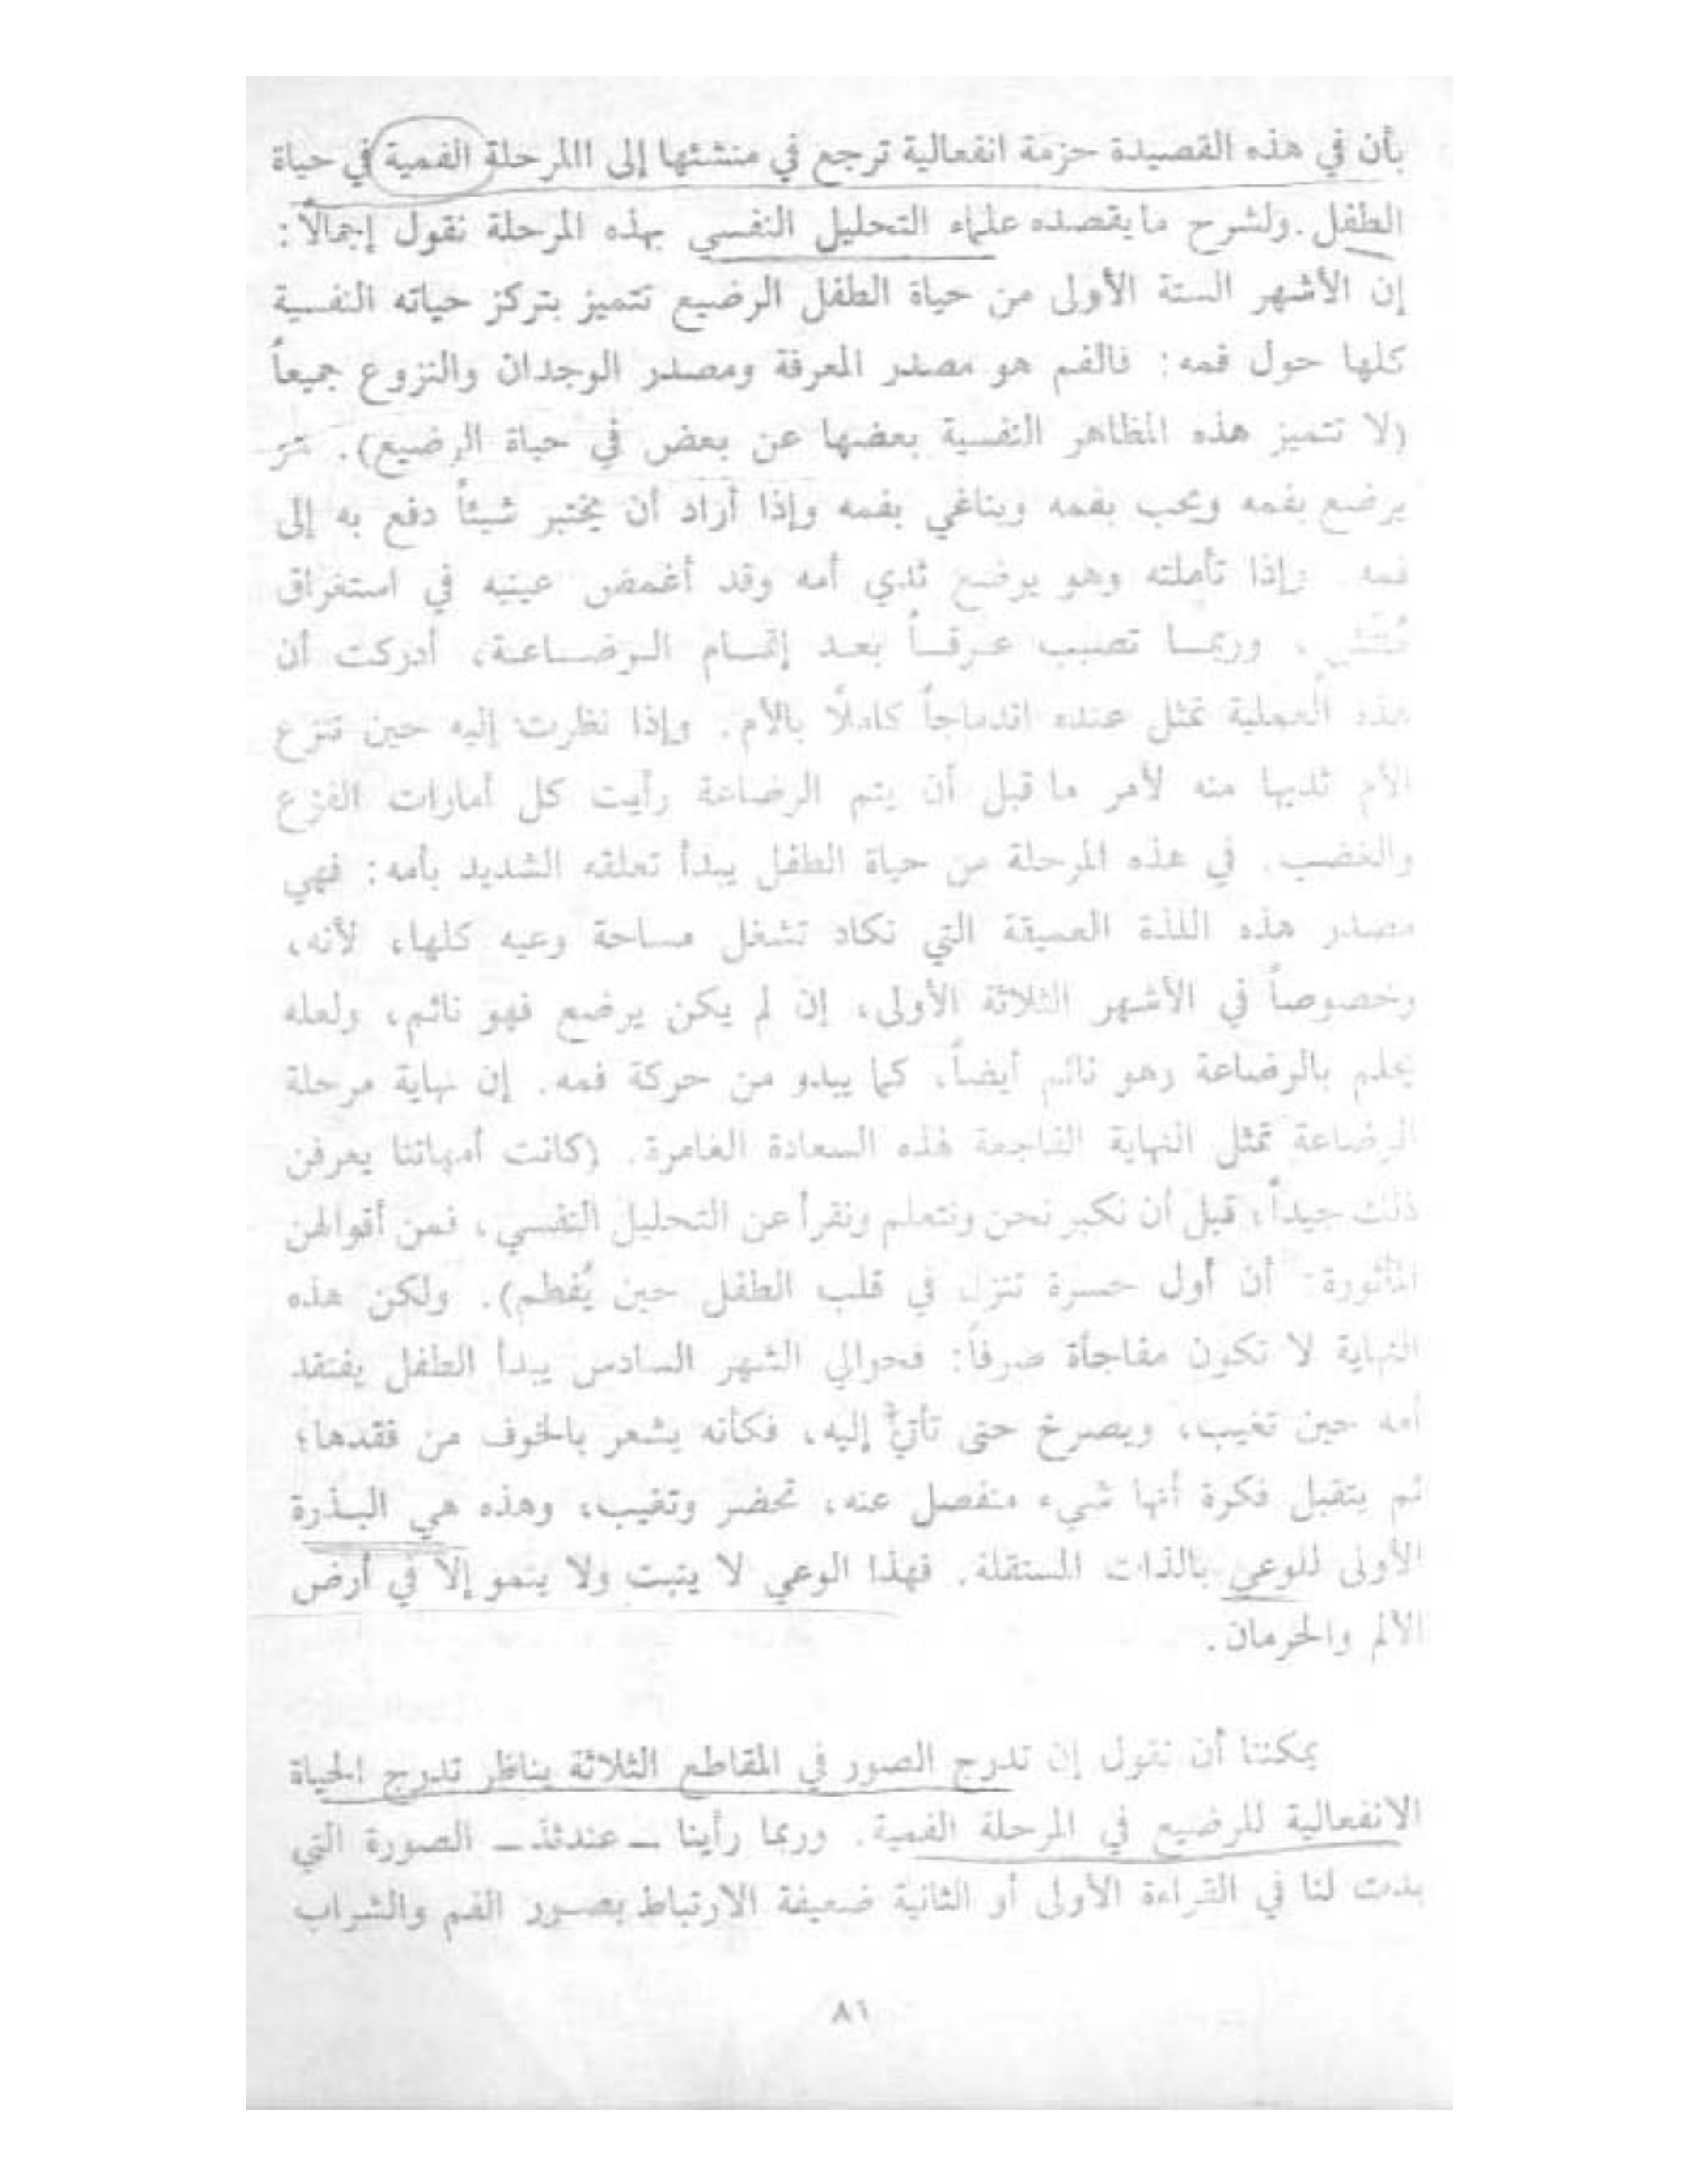 بأن في هذه القصيدة حزمة انفعالية ترجع في منشئها إلى االمرحلة الفمية في حياة
الطفل. ولشرح ما يقصده علماء التحليل النفسي بهذه المرحلة نقول إجمالاً:
إن الأشهر الستة الأولى من حياة الطفل الرضيع تتميز بتركز حياته النفسية
كلها حول فمه: فالفم هو مصدر المعرفة ومصدر الوجدان والنزوع جميعاً
(لا تتميز هذه المظاهر النفسية بعضها عن بعض في حياة الرضيع).
يرضع بفمه ويحب بفمه ويناغي بفمه وإذا أراد أن يختبر شيئاً دفع به إلى
فمه. وإذا تأملته وهو يرضع ثدي أمه وقد أغمض عينيه في استغراق
، وربمـا تصبب عـرقـاً بعـد إتمـام الـرضـاعـة، أدركت أن
هذه العملية تمثل عنده اندماجاً كاملاً بالأم. وإذا نظرت إليه حين تنزع
الأم ثديها منه لأمر ما قبل أن يتم الرضاعة رأيت كل أمارات الفزع
والغضب. في هذه المرحلة من حياة الطفل يبدأ تعلقه الشديد بأمه: فهي
مصدر هذه اللذة العميقة التي تكاد تشغل مساحة وعيه كلها، لأنه،
وخصوصاً في الأشهر الثلاثة الأولى، إن لم يكن يرضع فهو نائم، ولعله
يحلم بالرضاعة وهو نائم أيضاً، كما يبدو من حركة فمه. إن نهاية مرحلة
الرضاعة تمثل النهاية الفاجعة لهذه السعادة الغامرة. (كانت أمهاتنا يعرفن
ذلك جيداً، قبل أن نكبر نحن ونتعلم ونقرأ عن التحليل النفسي، فمن أقوالهن
المأثورة: أن أول حسرة تنزل في قلب الطفل حين يُفطم). ولكن هذه
النهاية لا تكون مفاجأة صرفاً: فحوالي الشهر السادس يبدأ الطفل يفتقد
أمه حين تغيب، ويصرخ حتى تأتي إليه، فكأنه يشعر بالخوف من فقدها؛
ثم يتقبل فكرة أنها شيء منفصل عنه، تحضر وتغيب، وهذه هي البـذرة
الأولى للوعي بالذات المستقلة. فهذا الوعي لا ينبت ولا ينمو إلا في أرض
الألم والحرمان.
يمكننا أن نقول إن تدرج الصور في المقاطع الثلاثة يناظر تدرج الحياة
الانفعالية للرضيع في المرحلة الفمية. وربما رأينا ـ عندئذ ـ الصورة التي
بدت لنا في القراءة الأولى أو الثانية ضعيفة الارتباط بصور الفم والشراب
٨١